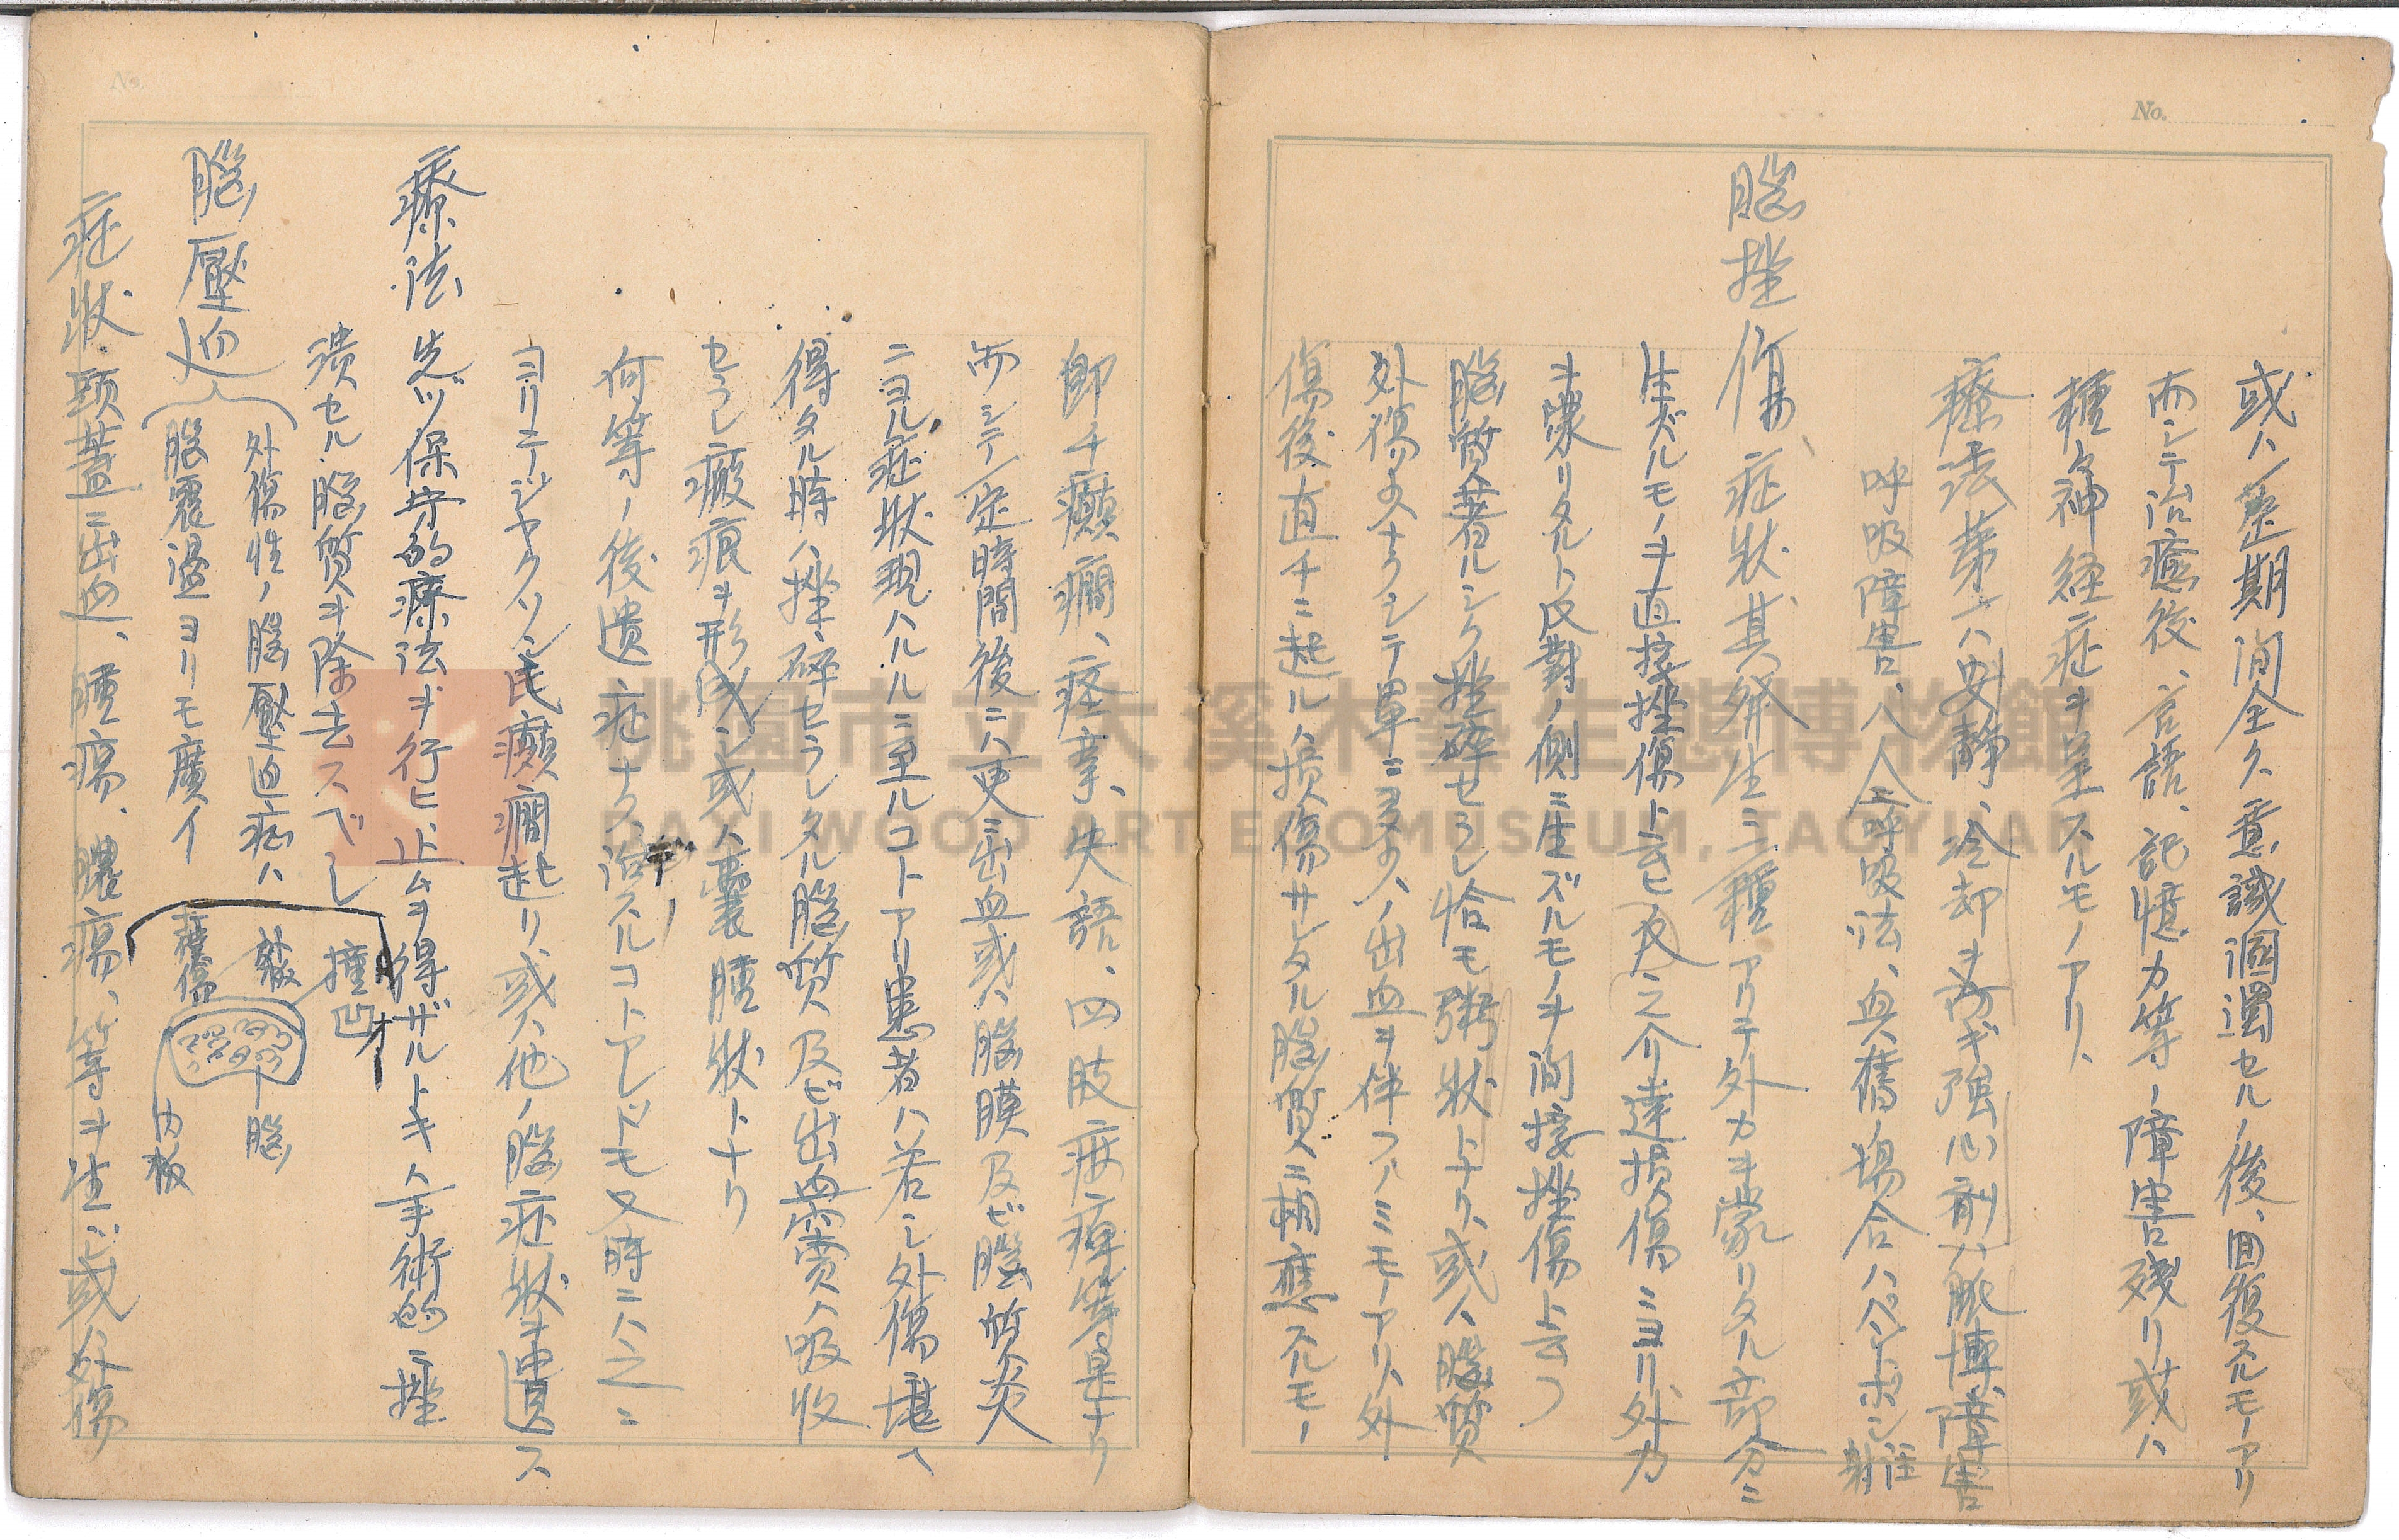 No.
或ハ整期間全ク意識溷濁セル後、回復スルモノアリ
而シテ治癒後、言語、記憶力等ノ障害残リ或ハ
種々神経症ヲ呈スルモノアリ、
療法 第一ハ安静、冷却ヲ防ギ強心剤ハ脈博障害
呼吸障害、ハ人工呼吸法、興奮ノ場合ハパントポン注射
脳挫傷、症状、其発生ニ二種アリテ外力ヲ蒙リタル部分ニ
生ズルモノヲ直接挫傷ト云ヒ反之介達損傷ニヨリ外力
ヲ蒙リタルト反對ノ側ニ生ズルモノヲ間接挫傷ト云フ
脳質著ルシク挫砕セラレ恰モ粥状トナリ、或ハ脳質
外傷少ナクシテ単ニ多少ノ出血ヲ伴フノミモノアリ、外
傷後直チニ起ルハ損傷サレタル脳質ニ相應スルモノ
即チ癲癇、痙攣、失語、四肢麻痺等是ナリ
而シテ一定時間後ニハ更ニ出血或ハ脳膜及ビ脳質炎
ニヨル症状現ハルルニ至ルコトアリ患者ハ若シ外傷堪ヘ
得タル時ハ挫砕セラレタル脳質及ビ出血質ハ吸収
セラレ瘢痕ヲ形成シ或ハ嚢腫状トナリ
何等ノ後遺症ナク治スルコトアレドモ又時ニハ之ニ
ヨリテジャクソン氏癲癇起リ、或ハ他ノ脳症状ヲ遺ス
療法 先ヅ保守的療法ヲ行ヒ止ムヲ得ザルトキハ手術的ニ挫
潰セル脳質ヲ除去スベシ
脳壓迫
外傷性ノ脳壓迫症ハ
脳震盪ヨリモ廣イ
撞凹
外板
撲傷
脳
内板
症状 頭蓋ニ出血、腫瘍、膿瘍、等ヲ生ジ或ハ外傷
桃園市立大溪木藝生態博物館
DAXI WOOD ART ECOMUSEUM, TAOYUAN